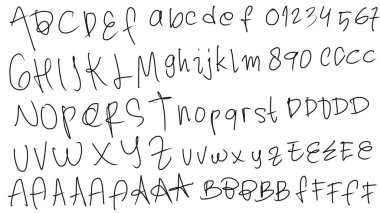 ABCDEf abcdef 01234567
GHIJKLM ghijklm 890 cccc
NOPQRST nopqrst DDDDD
UVWXYZ uvwxyz EEEEE
AAAAAAAA BBBBB fFFfF